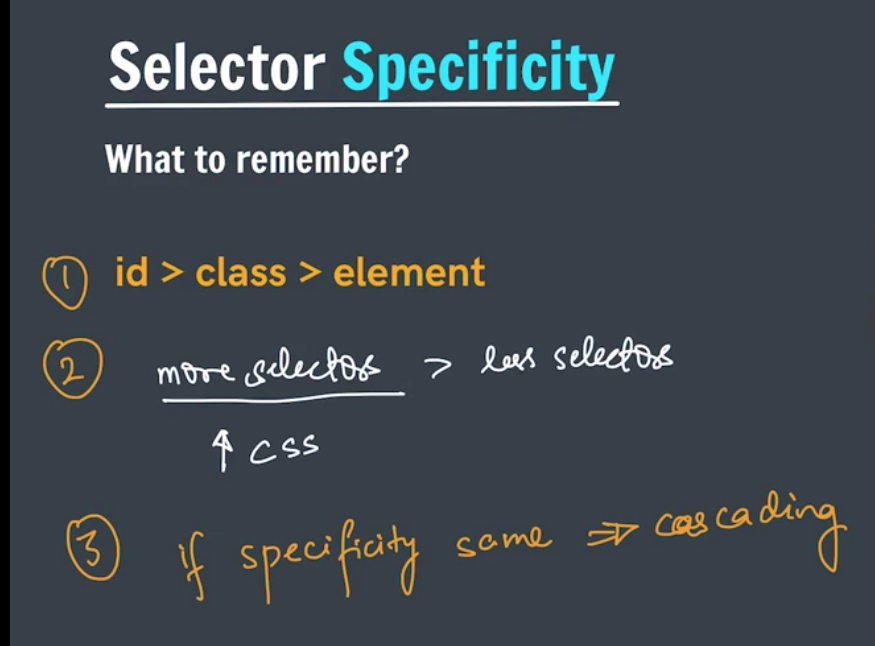 Selector Specificity
What to remember?
① id > class > element
② more selectors > less selectors
↑ css
③ if specificity same ⇒ cascading